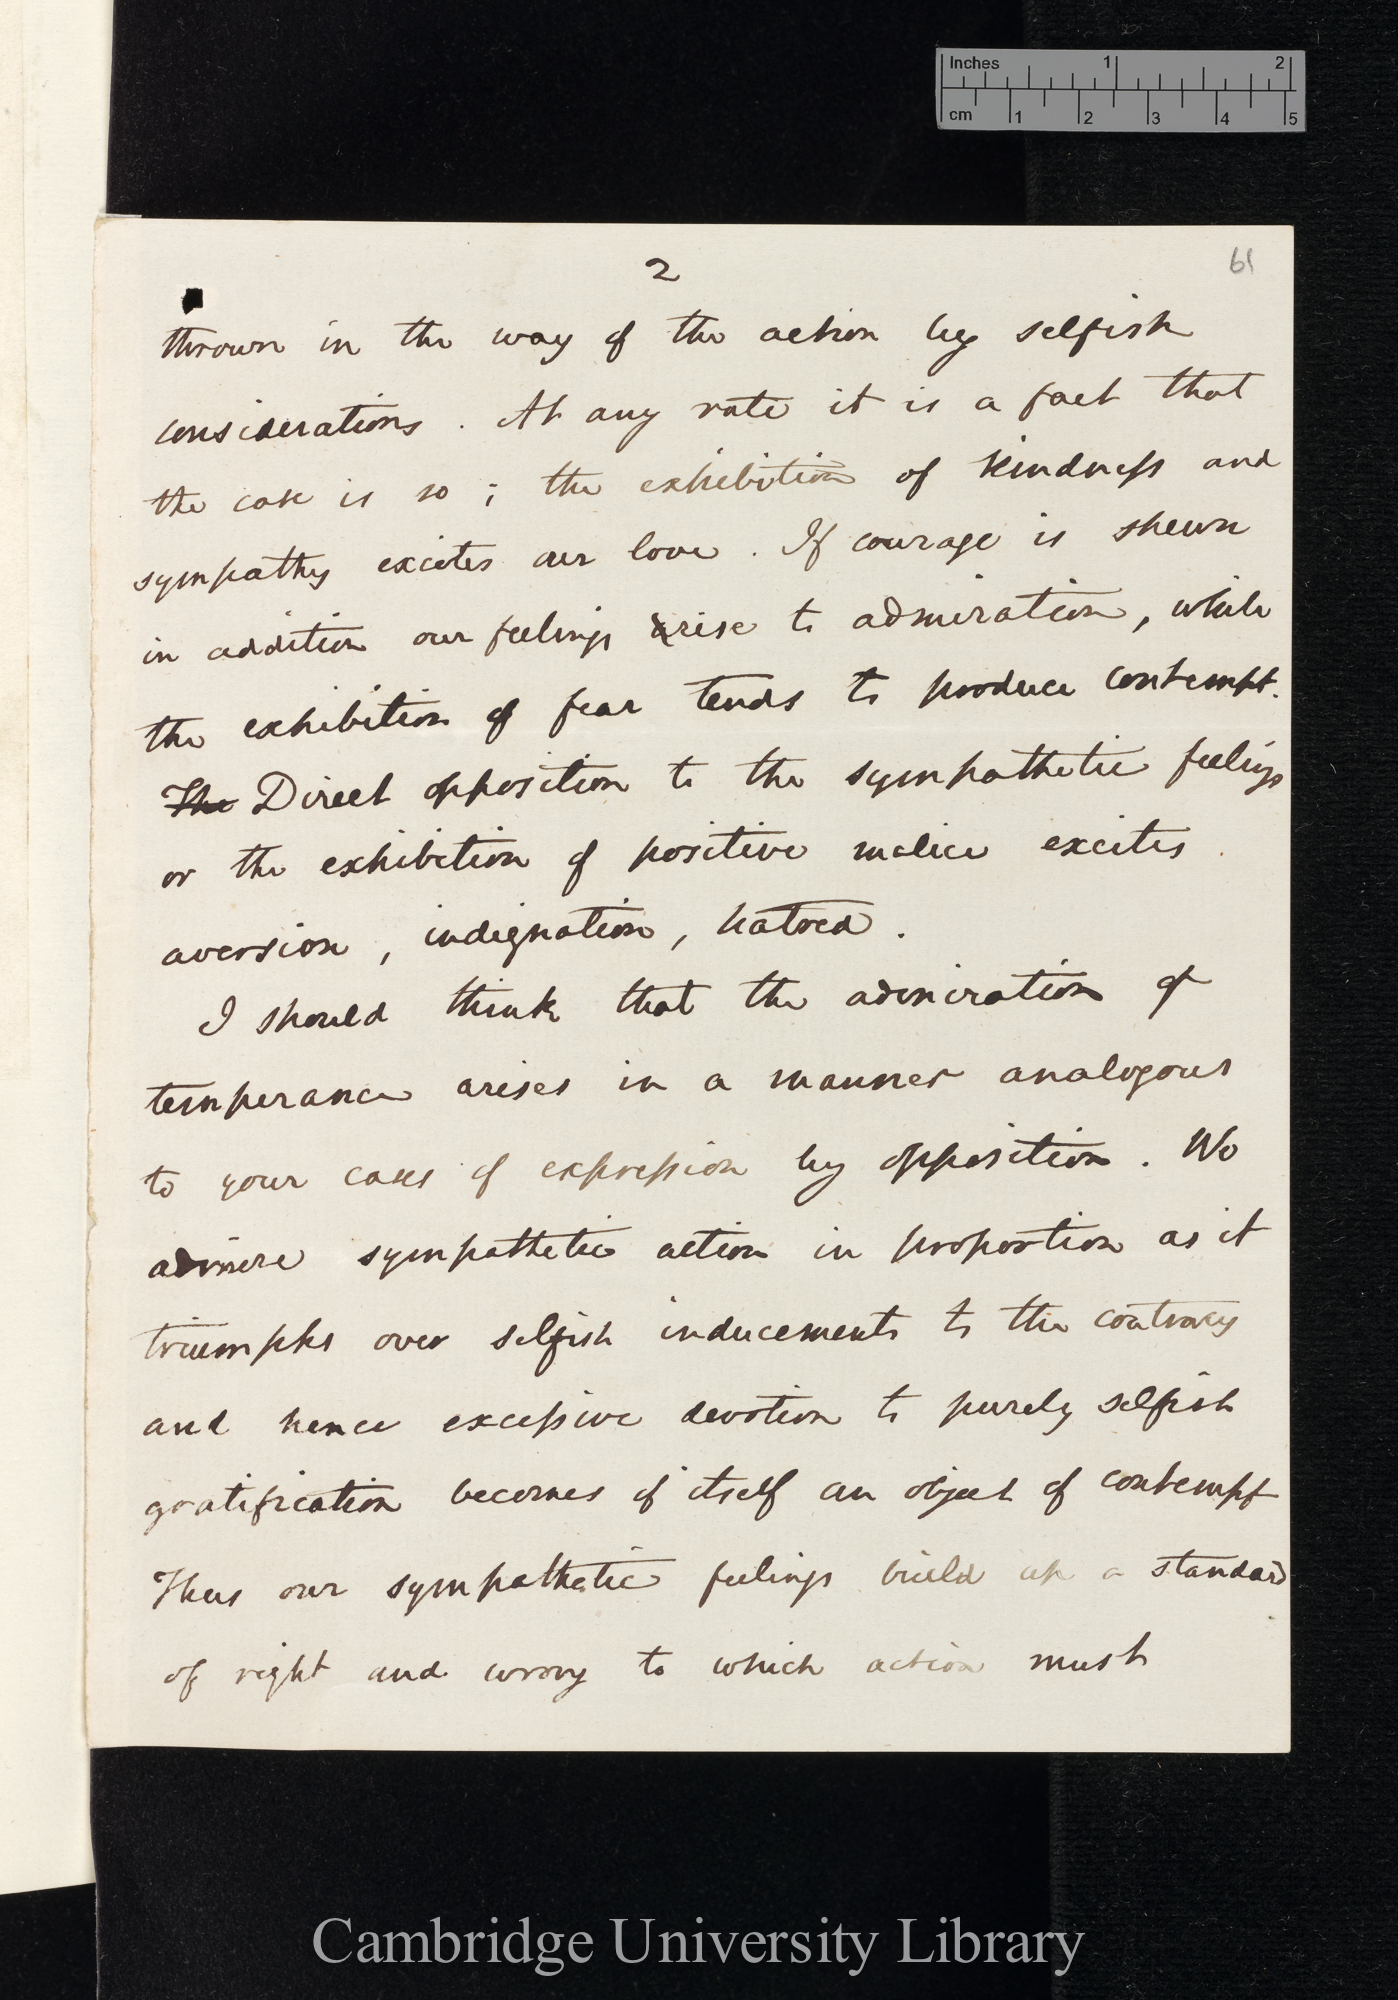 Inches 1 2
cm 1 2 3 4 5
2
61
thrown in the way of the action by selfish
considerations. At any rate it is a fact that
the case is so; the exhibition of kindness and
sympathy excites our love. If courage is shewn
in addition our feelings rise to admiration, while
the exhibition of fear tends to produce contempt.
The Direct opposition to the sympathetic feelings
or the exhibition of positive malice excites
aversion, indignation, hatred.
I should think that the admiration of
temperance arises in a manner analogous
to your cases of expression by opposition. We
admire sympathetic action in proportion as it
triumphs over selfish inducements to the contrary
and hence excessive devotion to purely selfish
gratification becomes of itself an object of contempt
Thus our sympathetic feelings build up a standard
of right and wrong to which action must
Cambridge University Library